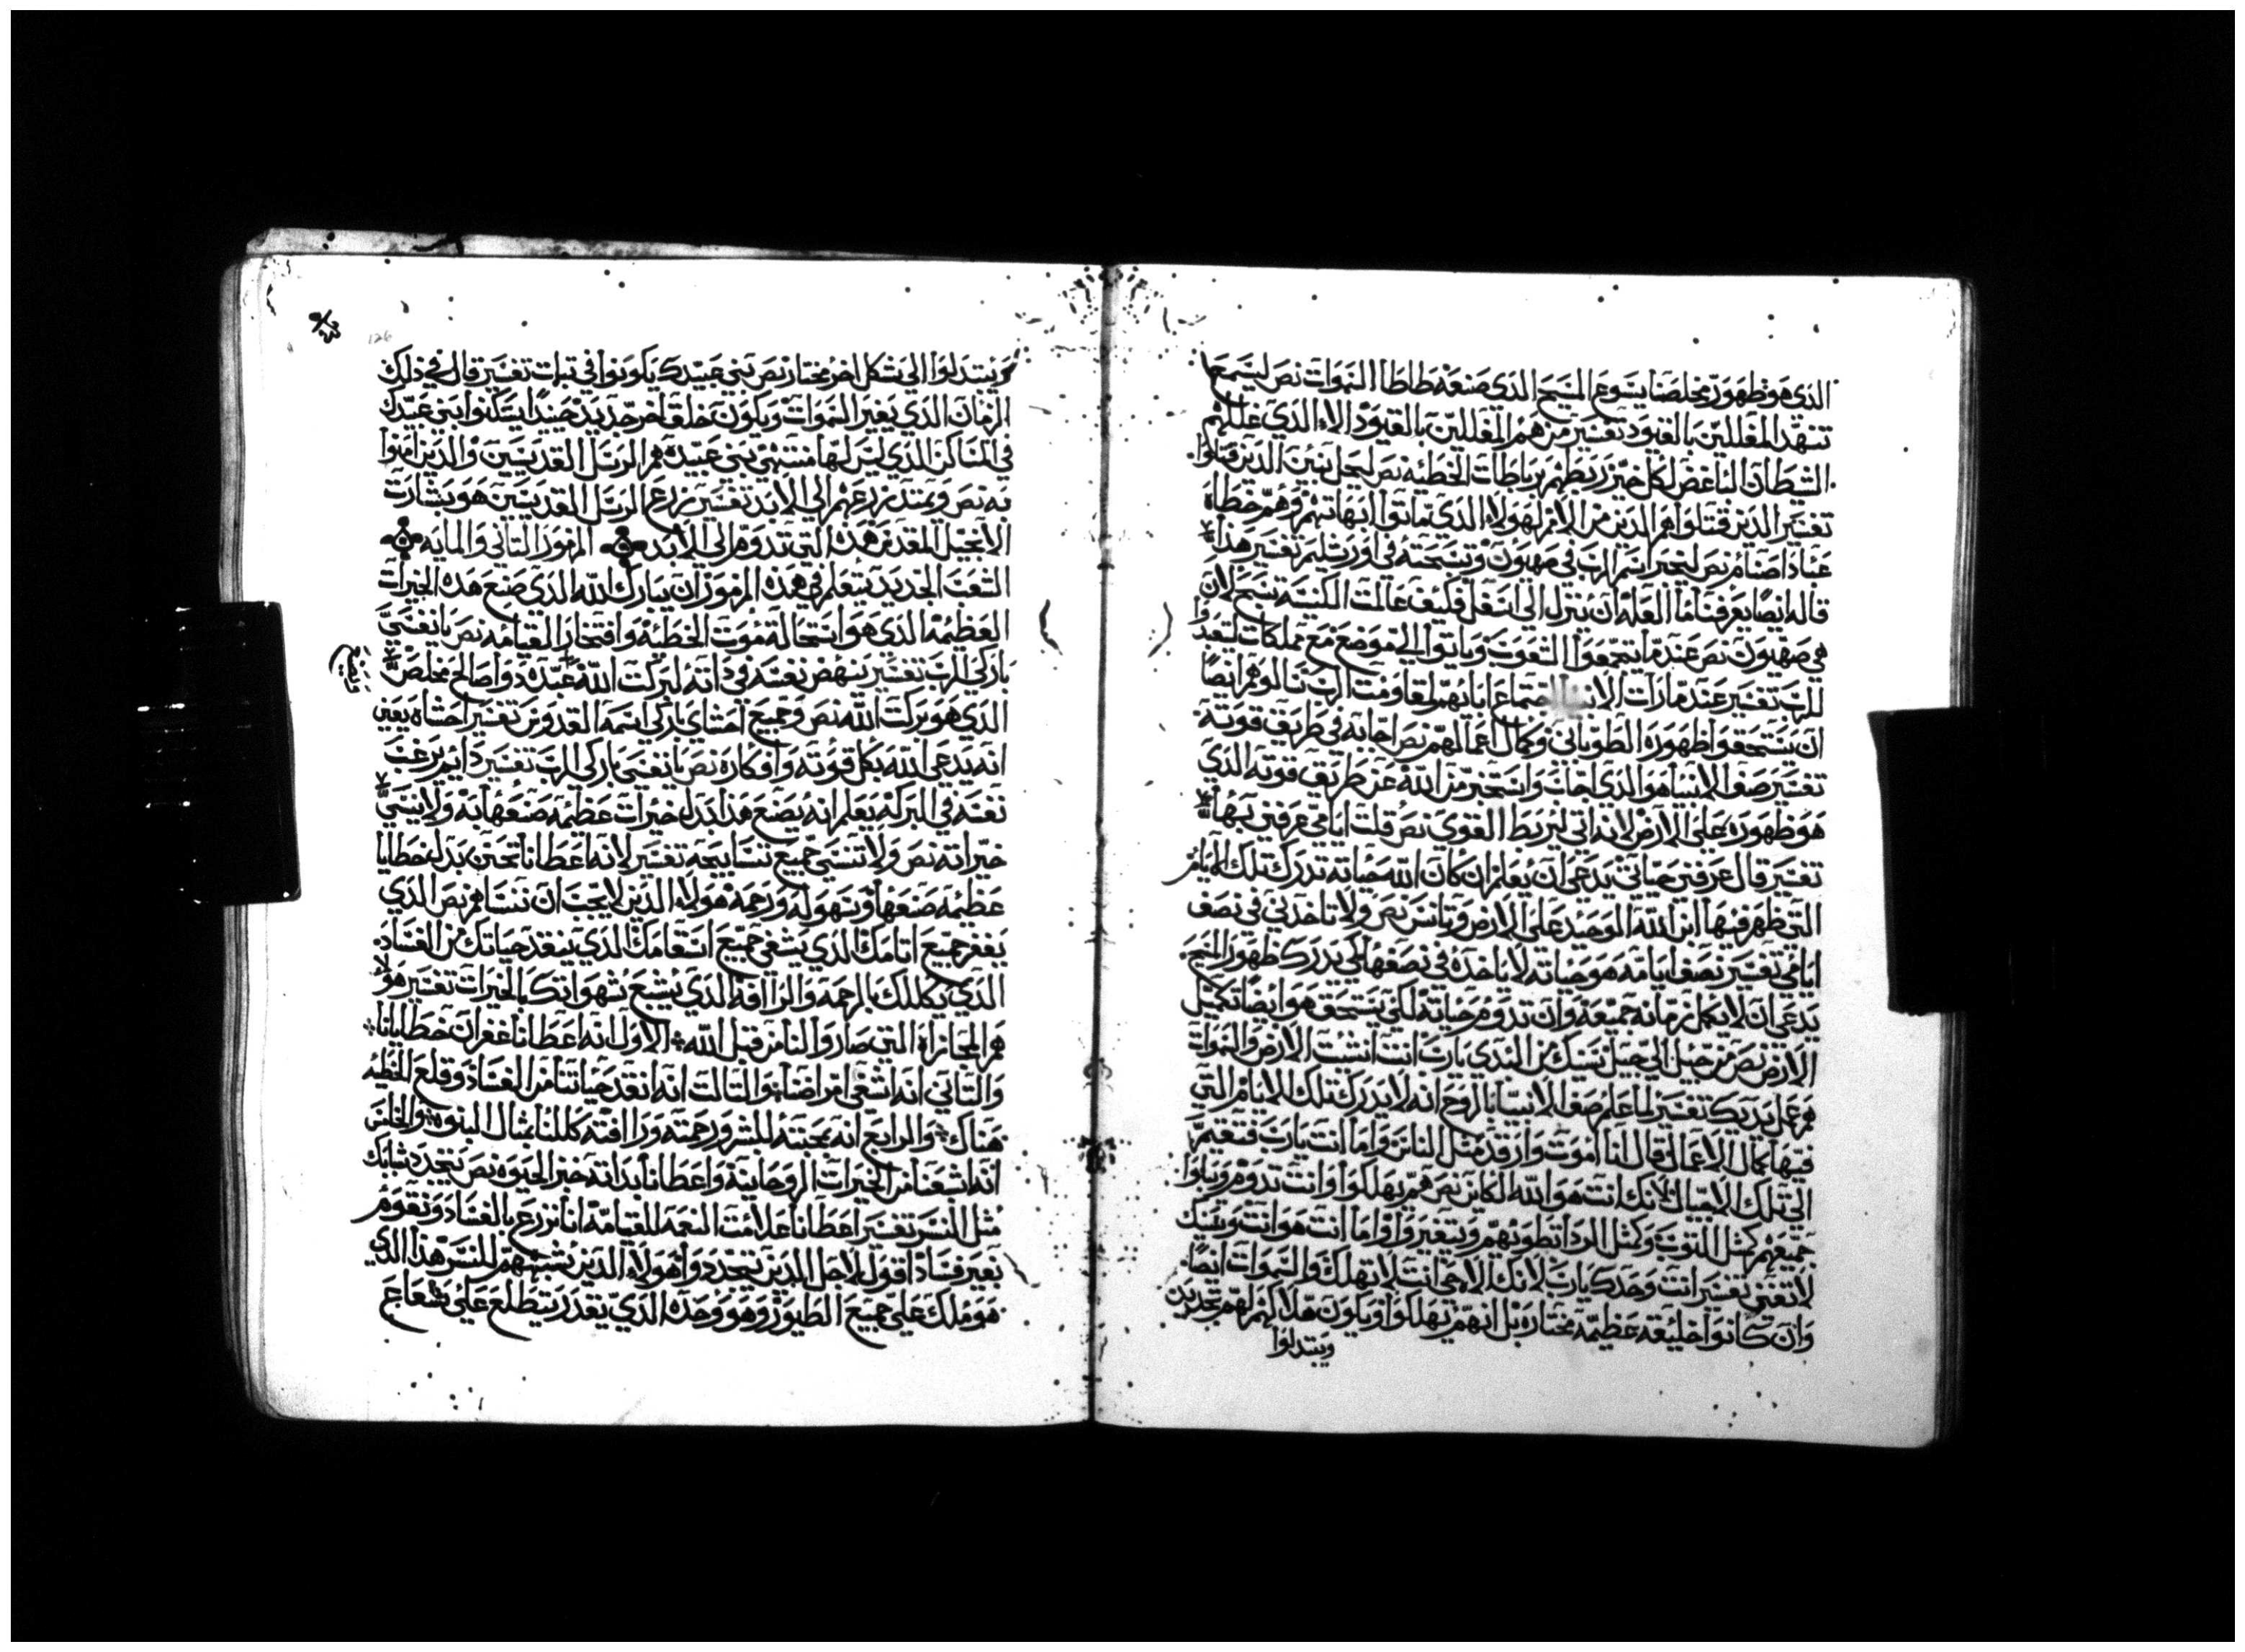 الذي هو ظهور مخلصنا يسوع المسيح الذي صنعه طاطا السموات نص ليسمع
تنهد المغللين بالقيود تفسير من هم المغللين بالقيود الاء الذي غللهم
الشيطان الباغض لكل خير ربطهم برباطات الخطيه نص ليحل بنين الذين قتلوا
تفسير الذين قتلوا هم الذين من الامم لهولاء الذي تماتوا ابهاتهم وهم خطاه
عباد اصنام نص ليخبر اسم الرب في صهيون وتسبحته في اورشليم تفسير هذا
قاله ايضا يعرفنا ما العله ان ينزل الى اسفل فكيف عالمت الكنيسه تسبح لان
هي صهيون نص عندما يتجمعوا الشعوب وياتوا الى موضع مع مملكات ليتعبدوا
للرب تفسير عندما رات اجتماع اناتهم لمقاومت الرب تنالوهم ايضا
ان يستحقوا ظهوره الطوباني وكمال اعمالهم نص اجابه في طريق قوته
تفسير صف الانبيا هو الذي اجاب واستخبر من الله عن طريق قوته الذي
هو ظهوره على الارض لانه اتى ليربط القوي نص قلت ايامي عرفني بها
تفسير قال عرفني حياتي يدعي ان يعلم ان كان الله حياته تدرك تلك الايام
التي ظهر فيها ابن الله الوحيد على الارض وتانس نص ولا تاخدني في نصف
ايامي تفسير نصف ايامه هو حياته لا ياخده في نصفها لكي يدرك ظهور المسيح
يدعي ان لا يكمل زمانه جميعه وان تدوم حياته لكي يستحق هو ايضا تكميل
الارض نص من جيل الى جيل سنينك من البدي يارب انت انشيت الارض والسموات
هم عمل يديك تفسير لما علم صف الانبيا بالروح انه لا يدرك تلك الايام التي
فيها كمال الاعمال قال انا اموت وارقد مثل الناس واما انت يارب فتقيم
الى تلك الاجيال لانك انت هو الله الكاين نص هم يهلكوا وانت تدوم ويبلوا
جميعهم كمثل التوب وكمثل الردا تطويهم ويتغيروا واما انت هو انت وسنينك
لا تفنى تفسير انت وحدك يارب لانك الاهي انت لا تهلك والسموات ايضا
وان كانوا خليقه عظيمه مختاره بل انهم يهلكوا ويكون هلاكهم لهم تجديد
ويتبدلوا
ويتبدلوا الى شكل اخر مختار نص بني عبيدك يكونوا في تبات تفسير قال في دلك
الزمان الذي يغير السموات ويكون خلق اخر جديد حينيدا يسكنوا بني عبيدك
في المساكن الذي ليس لها منتهى بني عبيده هم الرسل القديسين والذين امنوا
به نص ويمتد زرعهم الى الابد تفسير زرع الرسل القديسين هو بشارت
الانجيل المقدس هذه التي تدوم الى الابد المزمور التاني والمايه
الشعب الجديد يتعلم في هذه المزمور ان يبارك لله الذي صنع هذه الخيرات
العظيمه الذي هو استحالة موت الخطيه وافتخار القيامه نص يا نفسي
باركي للرب تفسير ينهض نفسه في داته لبركت الله عبده دوا صالح مخلص
الذي هو بركت الله نص وجميع احشاي باركي اسمه القدوس تفسير احشاه يعني
انه يدعي الله بكل قوته وافكاره نص يا نفسي باركي للرب تفسير دايم يرغب
نفسه في البركه يعلم انه يصنع هذا بدل خيرات عظيمه صنعها به ولا ينسى
خيراته نص ولا تنسى جميع تسابيحه تفسير لانه اعطانا تحنن بدل خطايا
عظيمه صنعها وسهوله ورحمه هولاء الذين لا يجب ان ننساهم نص الذي
يغفر جميع اتامك الذي يشفي جميع اسقامك الذي ينقد حياتك من الفساد
الذي يكللك بالرحمه والراافه الذي يشبع شهواتك بالخيرات تفسير هو
هم المجازاه التي صاروا لنا من قبل الله الاول انه اعطانا غفران خطايانا
والتاني انه اشفى امراضنا والتالت انه انقد حياتنا من الفساد وقلع الخطيه
هناك والرابع انه بمحبته للبشر ورحمته وراافته كللنا بمثال البنوه والخامس
انه اشبعنا من الخيرات الروحانيه واعطانا بداته خبز الحيوه نص يتجدد شبابك
مثل النسر تفسير اعطانا علامت النعمه القيامه اننا نزرع بالفساد ونقوم
بغير فساد اقول لاجل الدين يتجددوا هولاء الذين يشبههم للنسر هذا الذي
هو ملك على جميع الطيور وهو وحده الذي يقدر يتطلع على شعاع
126